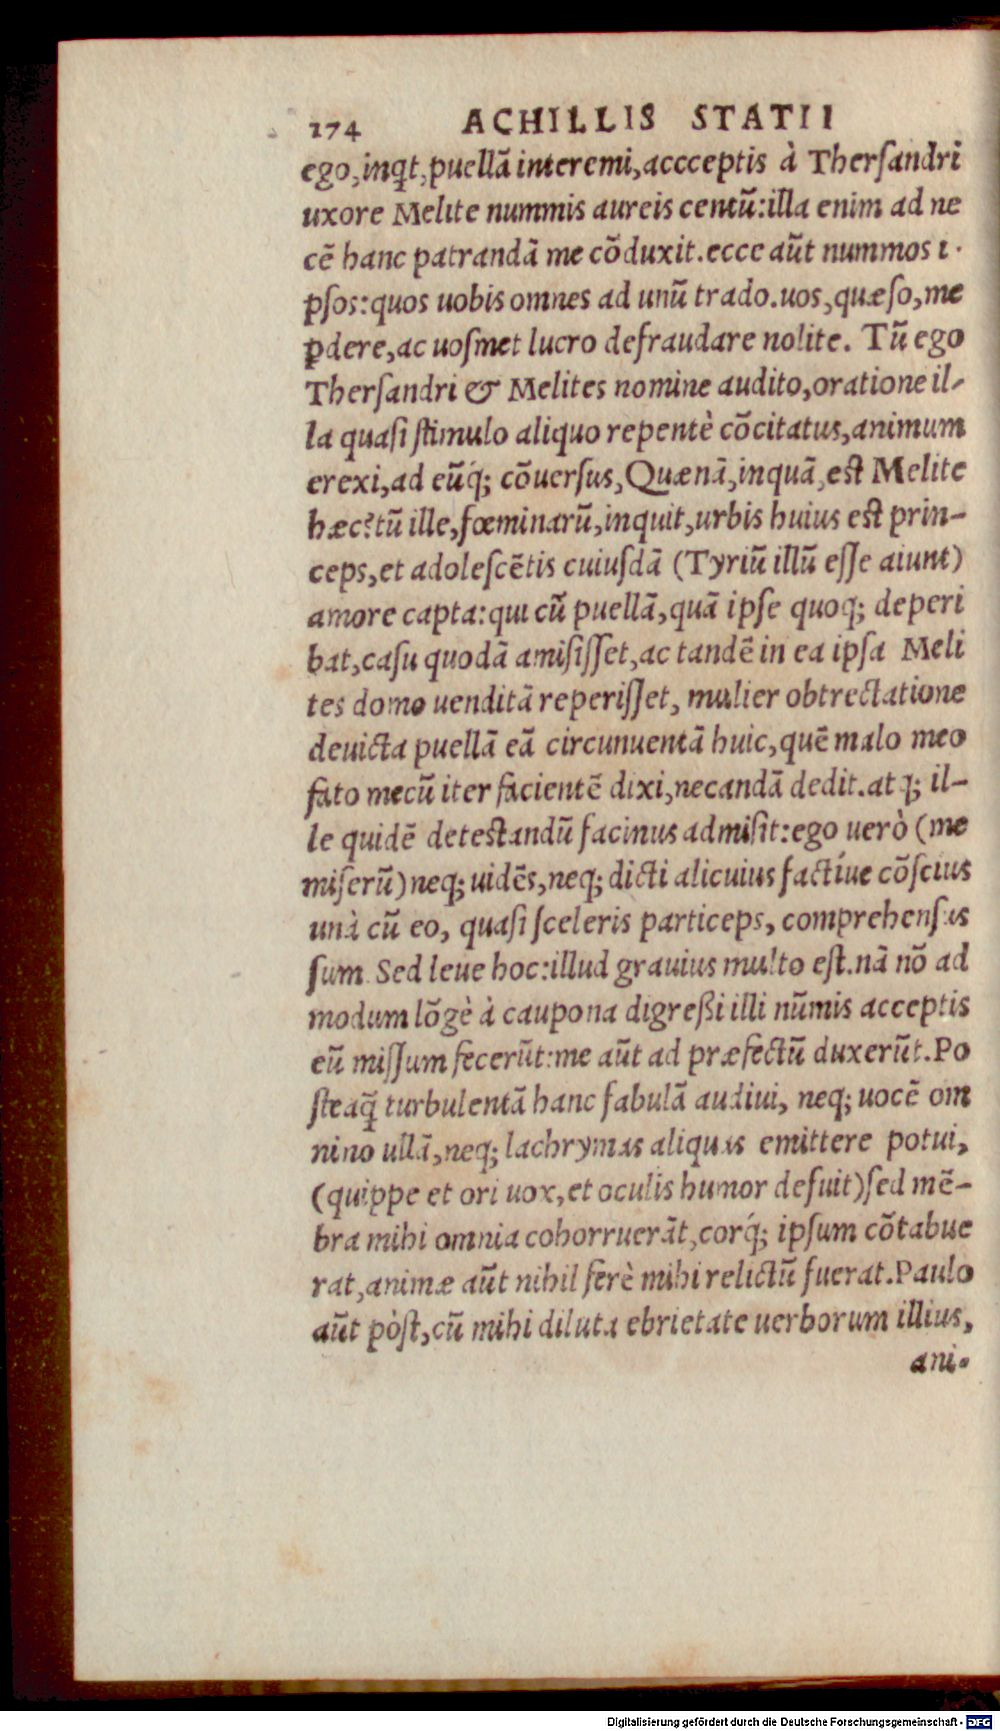 174 ACHILLIS STATII
ego, inq̃t, puellã interemi, accceptis à Therſandri
uxore Melite nummis aureis centũ: illa enim ad ne
cẽ hanc patrandã me cõduxit. ecce aũt nummos i-
pſos: quos uobis omnes ad unũ trado. uos, quæſo, me
ꝑdere, ac uoſmet lucro defraudare nolite. Tũ ego
Therſandri & Melites nomine audito, oratione il-
la quaſi ſtimulo aliquo repentè cõcitatus, animum
erexi, ad eũq́; cõuerſus, Quænã, inquã, eſt Melite
hæc? tũ ille, fœminarũ, inquit, urbis huius eſt prin-
ceps, et adoleſcẽtis cuiuſdã (Tyriũ illũ eſſe aiunt)
amore capta: qui cũ puellã, quã ipſe quoq; deperi
bat, caſu quodã amiſiſſet, ac tandẽ in ea ipſa Meli
tes domo uenditã reperiſſet, mulier obtrectatione
deuicta puellã eã circunuentã huic, quẽ malo meo
fato mecũ iter facientẽ dixi, necandã dedit. atq; il-
le quidẽ deteſtandũ facinus admiſit: ego uerò (me
miſerũ) neq; uidẽs, neq; dicti alicuius factíue cõſcius
unà cũ eo, quaſi ſceleris particeps, comprehenſus
ſum. Sed leue hoc: illud grauius multo eſt. nã nõ ad
modum lõgè à caupona digreßi illi nũmis acceptis
eũ miſſum fecerũt: me aũt ad præfectũ duxerũt. Po
ſteaq̃ turbulentã hanc fabulã audiui, neq; uocẽ om
nino ullã, neq; lachrymas aliquas emittere potui,
(quippe et ori uox, et oculis humor defuit) ſed mẽ-
bra mihi omnia cohorruerãt, corq́; ipſum cõtabue
rat, animæ aũt nihil ferè mihi relictũ fuerat. Paulo
aũt pòſt, cũ mihi diluta ebrietate uerborum illius,
ani-
Digitalisierung gefördert durch die Deutsche Forschungsgemeinschaft - DFG